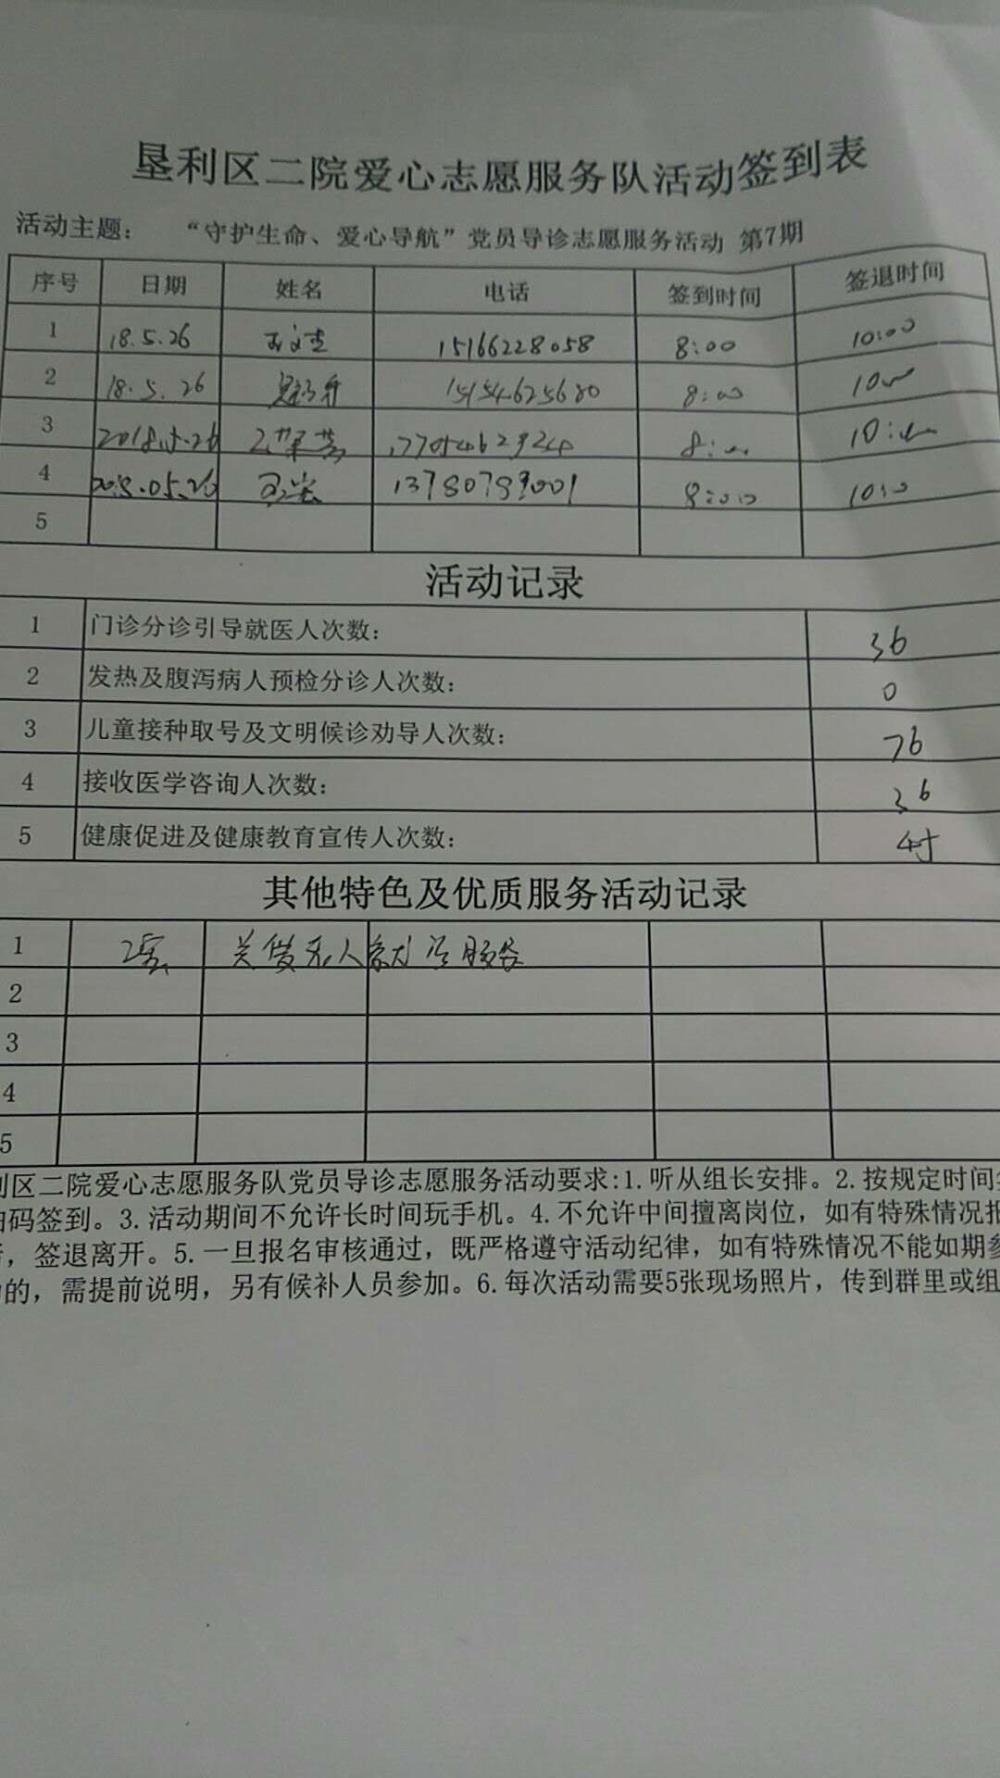 垦利区二院爱心志愿服务队活动签到表
活动主题： “守护生命、爱心导航”党员导诊志愿服务活动 第7期
序号 日期 姓名 电话 签到时间 签退时间
1 18.5.26 15166228058 8:00 10:00
2 18.5.26 15154625680 8:00
3 2018.5.26
4 2018.05.26 13780789001 8:00
5
活动记录
1 门诊分诊引导就医人次数： 36
2 发热及腹泻病人预检分诊人次数： 0
3 儿童接种取号及文明候诊劝导人次数： 76
4 接收医学咨询人次数： 36
5 健康促进及健康教育宣传人次数：
其他特色及优质服务活动记录
1 服务
2
3
4
5
利区二院爱心志愿服务队党员导诊志愿服务活动要求:1.听从组长安排。2.按规定时间
码签到。3.活动期间不允许长时间玩手机。4.不允许中间擅离岗位，如有特殊情况报
，签退离开。5.一旦报名审核通过，既严格遵守活动纪律，如有特殊情况不能如期参
的，需提前说明，另有候补人员参加。6.每次活动需要5张现场照片，传到群里或组